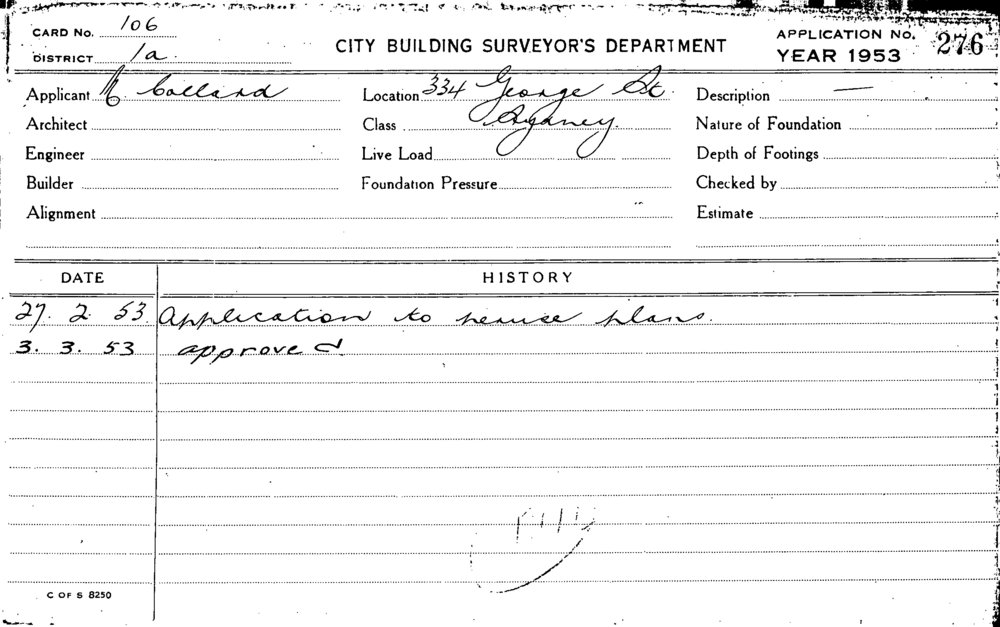 CARD No. 106
DISTRICT 1a
CITY BUILDING SURVEYOR'S DEPARTMENT
APPLICATION No. 276
YEAR 1953
Applicant Colland
Location 334 George St.
Sydney.
Description —
Architect
Class
Nature of Foundation
Engineer
Live Load
Depth of Footings
Builder
Foundation Pressure
Checked by
Alignment
Estimate
DATE HISTORY
27. 2. 53. Application to peruse plans.
3. 3. 53 approved.
C OF S 8250